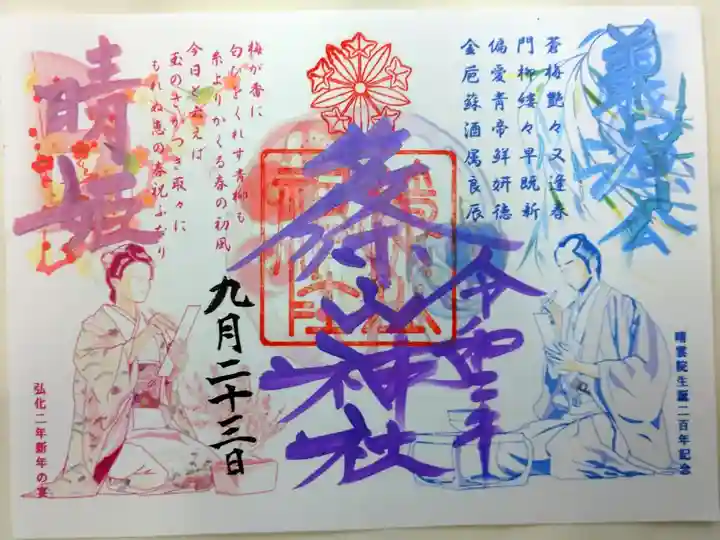 義源公
蒼梅艶々又逢春
門柳縷々早既新
偏愛青帝鮮妍徳
金巵蘇酒属良辰
晴雲院生誕二百年記念
篠山神社
九月二十三日
梅が香に
匂ひをくれす青柳も
糸よりかくる春の初風
今日と云えば
玉のさかつき取々に
もれぬ恵の春祝ふなり
晴姫
弘化二年新年の宴